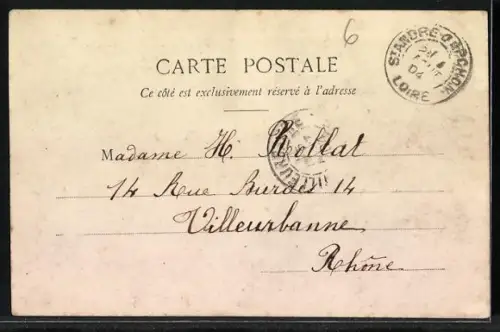 6
ST ANDRE D'APCHON
LOIRE
04
CARTE POSTALE
Ce côté est exclusivement réservé à l'adresse
Madame H. Rollat
14 Rue 14
Villeurbanne
Rhône